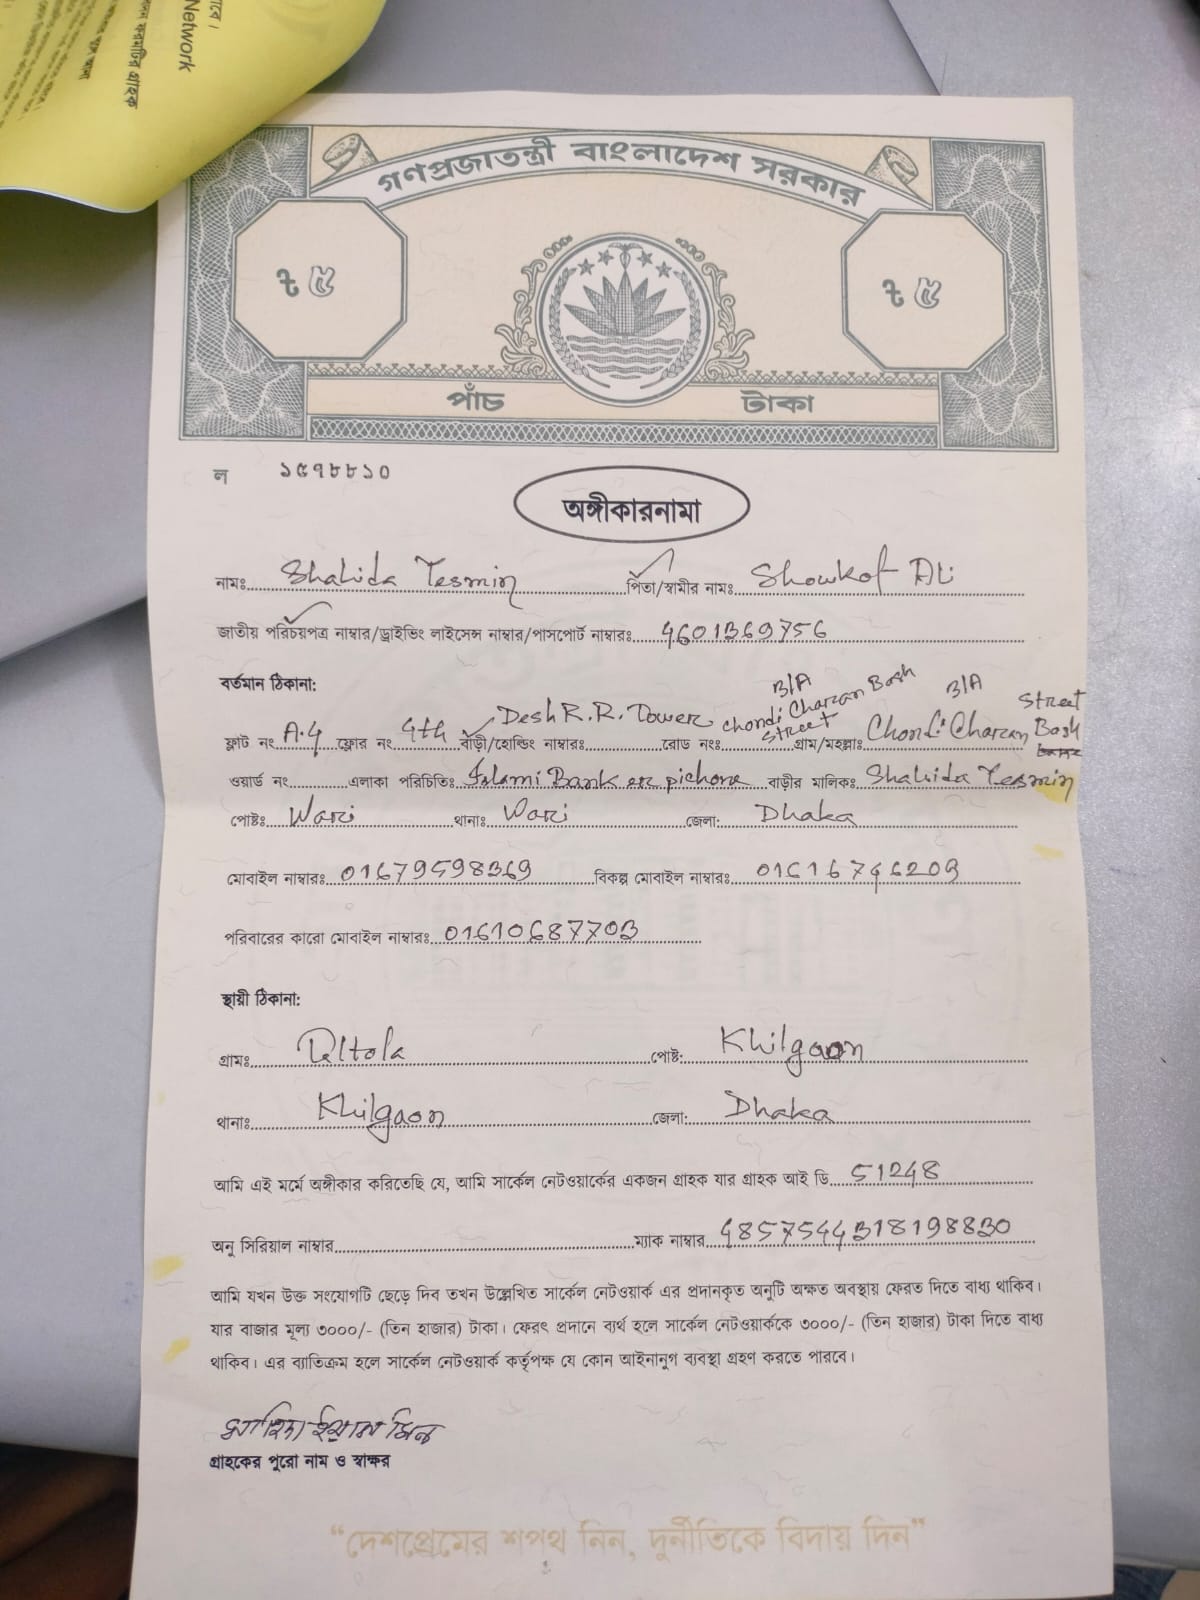 গণপ্রজাতন্ত্রী বাংলাদেশ সরকার
৳ ৫ ৳ ৫
পাঁচ টাকা
ল ১৫৭৮৮১০
অঙ্গীকারনামা
নামঃ Shahida Yesmin পিতা/স্বামীর নামঃ Showkot Ali
জাতীয় পরিচয়পত্র নাম্বার/ড্রাইভিং লাইসেন্স নাম্বার/পাসপোর্ট নাম্বারঃ 4601369756
বর্তমান ঠিকানা:
ফ্লাট নং A-4 ফ্লোর নং 4th বাড়ী/হোল্ডিং নাম্বারঃ Desh R.R. Tower রোড নংঃ 3/A Chondi Charan Bosh Street গ্রাম/মহল্লাঃ 3/A Chondi Charan Bosh Street
ওয়ার্ড নং এলাকা পরিচিতিঃ Islami Bank er pichone বাড়ীর মালিকঃ Shahida Yesmin
পোষ্টঃ Wari থানাঃ Wari জেলা: Dhaka
মোবাইল নাম্বারঃ 01679598369 বিকল্প মোবাইল নাম্বারঃ 01616746209
পরিবারের কারো মোবাইল নাম্বারঃ 01610687703
স্থায়ী ঠিকানা:
গ্রামঃ পোষ্ট: Khilgaon
থানাঃ Khilgaon জেলা: Dhaka
আমি এই মর্মে অঙ্গীকার করিতেছি যে, আমি সার্কেল নেটওয়ার্কের একজন গ্রাহক যার গ্রাহক আই ডি 51248
অনু সিরিয়াল নাম্বার ম্যাক নাম্বার 4857544318198830
আমি যখন উক্ত সংযোগটি ছেড়ে দিব তখন উল্লেখিত সার্কেল নেটওয়ার্ক এর প্রদানকৃত অনুটি অক্ষত অবস্থায় ফেরত দিতে বাধ্য থাকিব।
যার বাজার মূল্য ৩০০০/- (তিন হাজার) টাকা। ফেরৎ প্রদানে ব্যর্থ হলে সার্কেল নেটওয়ার্ককে ৩০০০/- (তিন হাজার) টাকা দিতে বাধ্য
থাকিব। এর ব্যতিক্রম হলে সার্কেল নেটওয়ার্ক কর্তৃপক্ষ যে কোন আইনানুগ ব্যবস্থা গ্রহণ করতে পারবে।
গ্রাহকের পুরো নাম ও স্বাক্ষর
“দেশপ্রেমের শপথ নিন, দুর্নীতিকে বিদায় দিন”
Network